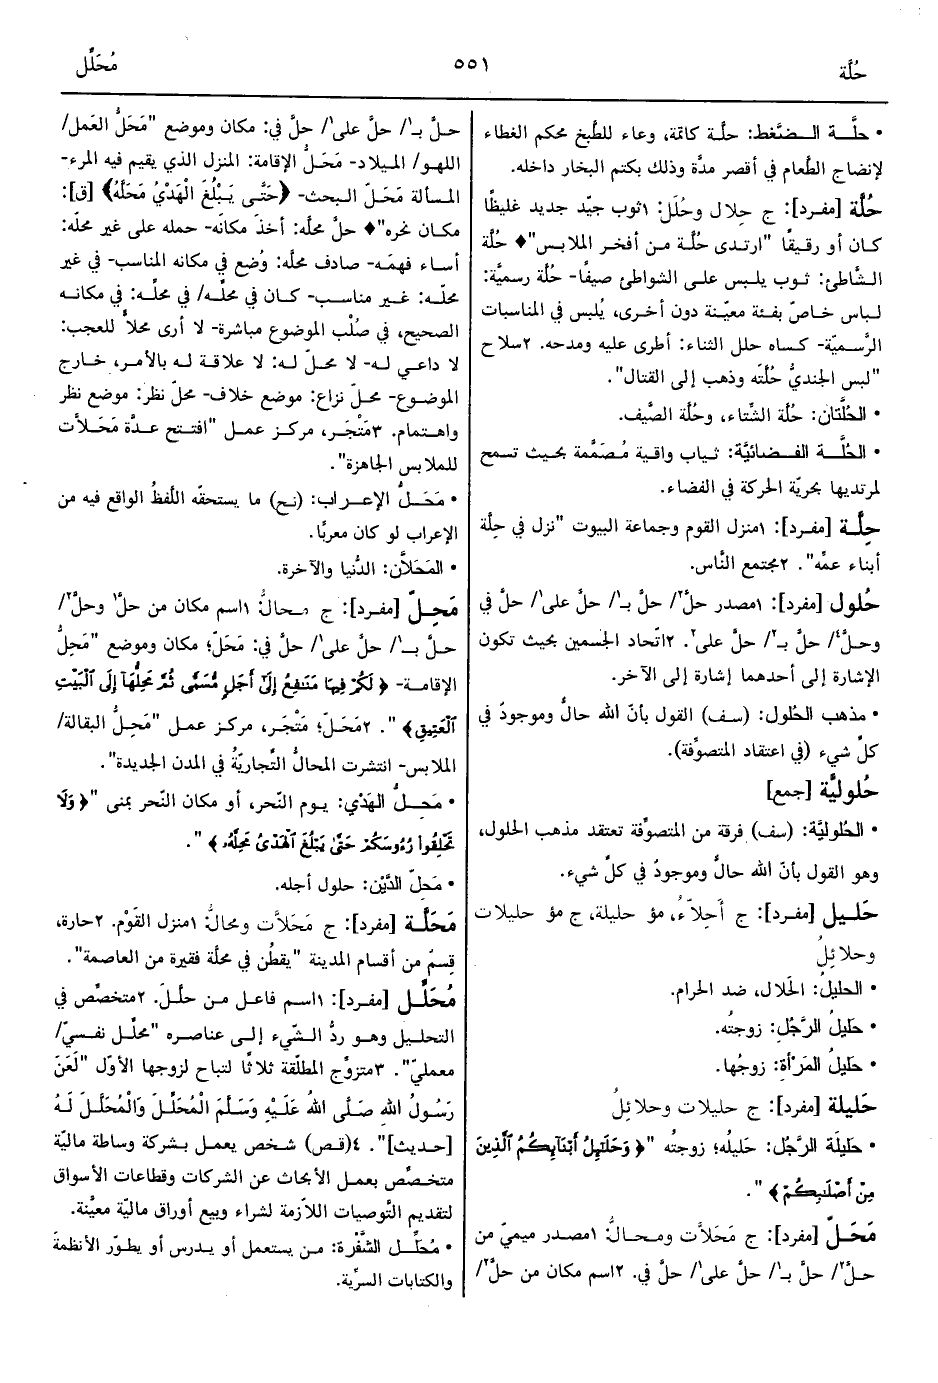 حُلَّة
٥٥١
مُحَلِّل
• حلَّـة الـضَّغط: حلَّة كاتمة، وعاء للطَّبخ محكم الغطاء
لإنضاج الطَّعام في أقصر مدَّة وذلك بكتم البخار داخله.
حُلَّة [مفرد]: ج حِلال وحُلَل: ١ثوب جيِّد جديد غليظًا
كان أو رقيقًا "ارتدى حلَّة مـن أفخـر الملابـس"♦ حُلَّة
الـشَّاطئ: ثـوب يلبـس علـى الشـواطئ صـيفًا- حُلَّة رسميَّة:
لـباس خـاصّ بفـئة معيّـنة دون أخـرى، يُلـبس في المناسـبات
الرَّسميَّة- كساه حلل الثناء: أطرى عليه ومدحه. ٢سلاح
"لبس الجنديُّ حُلَّته وذهب إلى القتال".
• الحُلَّتان: حُلَّة الشِّتاء، وحُلَّة الصَّيف.
• الحُلَّـة الفـضائيَّة: ثـياب واقـية مُصَمَّمة بحيث تسمح
لمرتديها بحريَّة الحركة في الفضاء.
حِلَّـة [مفرد]: ١منزل القوم وجماعة البيوت "نزل في حِلَّة
أبناء عمِّه". ٢مجتمع النَّاس.
حُلول [مفرد]: ١مصدر حلَّ٢/ حلَّ بـ١/ حلَّ على١/ حلَّ في
وحلَّ٤/ حلَّ بـ٢/ حلَّ على٢. ٢اتِّحاد الجسمين بحيث تكون
الإشارة إلى أحدهما إشارة إلى الآخر.
• مذهب الحُلول: (سف) القول بأنّ الله حالٌّ وموجودٌ في
كلِّ شيء (في اعتقاد المتصوِّفة).
حُلوليَّة [جمع]
• الحُلوليَّة: (سف) فرقة من المتصوِّفة تعتقد مذهب الحلول،
وهو القول بأنّ الله حالٌّ وموجودٌ في كلِّ شيء.
حَلـيل [مفـرد]: ج أحِلاّءُ، مؤ حليلة، ج مؤ حليلات
وحلائِلُ
• الحليلُ: الحَلال، ضد الحرام.
• حَليلُ الرَّجُل: زوجتُه.
• حَليلُ المَرْأة: زوجُها.
حَليلة [مفرد]: ج حليلات وحلائِلُ
• حَليلَة الرَّجُل: حَليلُه؛ زوجتُه "﴿ وَحَلَٰٓئِلُ أَبْنَآئِكُمُ ٱلَّذِينَ
مِنْ أَصْلَٰبِكُمْ ﴾ ".
مَحَلّ [مفرد]: ج مَحَلاَّت ومـحـالُّ: ١مصدر ميميّ من
حـلَّ٢/ حلَّ بـ١/ حلَّ على١/ حلَّ في. ٢اسم مكان من حلَّ٢/
حلَّ بـ١/ حلَّ على١/ حلَّ في: مكان وموضع "مَحَلُّ العَمل/
اللهو/ الميلاد- مَحَلُّ الإقامة: المنزل الذي يقيم فيه المرء-
المسألة مَحَلّ البحث- ﴿حَتَّى يَبْلُغَ الْهَدْيُ مَحَلَّهُ﴾ [ق]:
مكان نحره"♦ حلَّ محلَّه: أخذ مكانَه- حمله على غير محلّه:
أساء فهمَه- صادف محلَّه: وُضع في مكانه المناسب- في غير
محلّـه: غـير مناسـب- كـان في محلّـه/ في محلِّـه: في مكانـه
الصحيح، في صُلْب الموضوع مباشرة- لا أرى محلاًّ للعجب:
لا داعـي لـه- لا محـلّ لـه: لا علاقـة لـه بالأمـر، خـارج
الموضـوع- محـلّ نـزاع: موضع خلاف- محلّ نظر: موضع نظر
واهـتمام. ٣مَتْجَـر، مركـز عمـل "افتـتح عـدَّة مَحَـلاَّت
للملابس الجاهزة".
• مَحَـلُّ الإعـراب: (نـح) ما يستحقّه اللَّفظُ الواقع فيه من
الإعراب لو كان معربًا.
• المَحَلاَّن: الدُّنيا والآخرة.
مَحِـلّ [مفـرد]: ج مـحـالُّ: ١اسم مكان من حلَّ١ وحلَّ٢/
حـلَّ بــ١/ حلَّ على١/ حلَّ في: مَحَلّ؛ مكان وموضع "مَحِلُّ
الإقامة- ﴿ لَكُمْ فِيهَا مَنَٰفِعُ إِلَىٰٓ أَجَلٍ مُّسَمًّى ثُمَّ مَحِلُّهَآ إِلَى ٱلْبَيْتِ
ٱلْعَتِيقِ﴾ ". ٢مَحَلّ؛ مَتْجَر، مركـز عمـل "مَحِلُّ البقالة/
الملابس- انتشرت المحالُّ التِّجاريَّةُ في المدن الجديدة".
• مَحِـلُّ الهَدْي: يـوم النَّحر، أو مكان النَّحر بمنى "﴿ وَلَا
تَحْلِقُوا۟ رُءُوسَكُمْ حَتَّىٰ يَبْلُغَ ٱلْهَدْىُ مَحِلَّهُۥ ﴾ ".
• مَحَلّ الدَّيْن: حلول أجله.
مَحَلَّـة [مفرد]: ج مَحَلاَّت ومحالُّ: ١منزل القَوْم. ٢حارة،
قِسمٌ من أقسام المدينة "يقطُن في محلَّة فقيرة من العاصمة".
مُحَلِّـل [مفـرد]: ١اسـم فاعل مـن حلَّلَ. ٢متخصِّص في
التحلـيل وهـو ردُّ الـشَّيء إلـى عناصـره "محلِّـل نفسـيّ/
معمليّ". ٣متزوِّج المطلَّقة ثلاثًا لتباح لزوجها الأوّل "لَعَنَ
رَسُولُ اللهِ صَلَّى اللهُ عَلَيْهِ وَسَلَّمَ الْمُحَلِّلَ وَالْمُحَلَّلَ لَهُ
[حديث]". ٤(قص) شـخص يعمل بـشركة وساطة ماليَّة
متخـصِّص بعمـل الأبحاث عن الشركات وقطاعات الأسواق
لتقديم التَّوصيات اللاَّزمة لشراء وبيع أوراق ماليَّة معيَّنة.
• مُحلِّـل الشَّفْرة: مـن يستعمل أو يدرس أو يطوّر الأنظمة
والكتابات السرِّية.